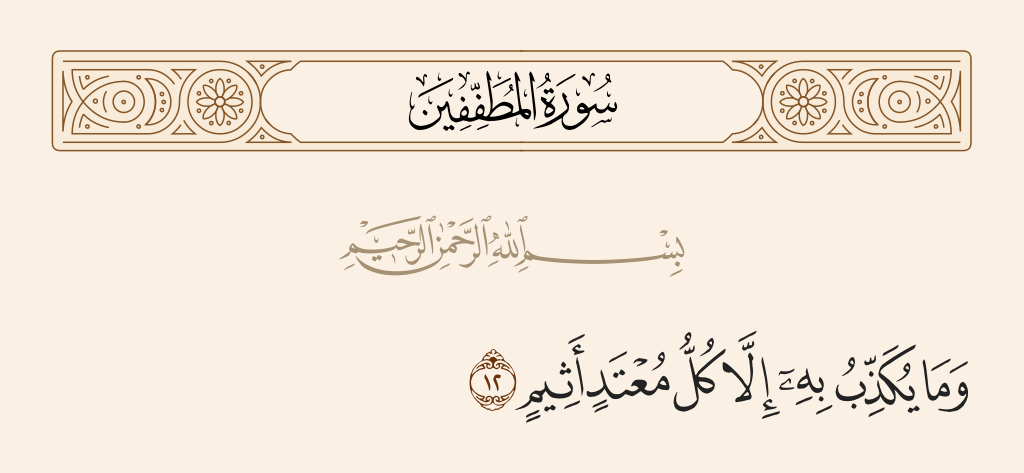 سُورَةُ المُطَفِّفِينَ
بِسْمِ ٱللَّهِ ٱلرَّحْمَٰنِ ٱلرَّحِيمِ
وَمَا يُكَذِّبُ بِهِۦٓ إِلَّا كُلُّ مُعْتَدٍ أَثِيمٍ ١٢